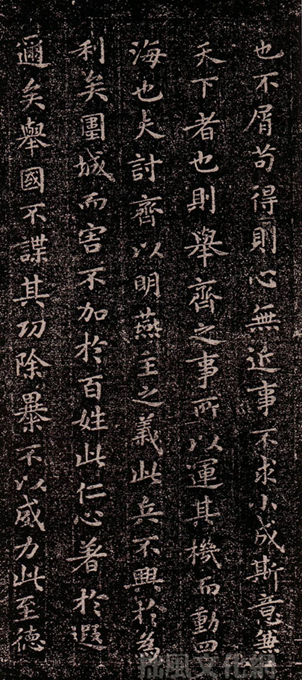 也不屑苟得則心無近事不求小成斯意無
天下者也則舉齊之事所以運其機而動四
海也夫討齊以明燕主之義此兵不興於為
利矣圍城而害不加於百姓此仁心著於遐
邇矣舉國不謀其功除暴不以威力此至德
風文化網